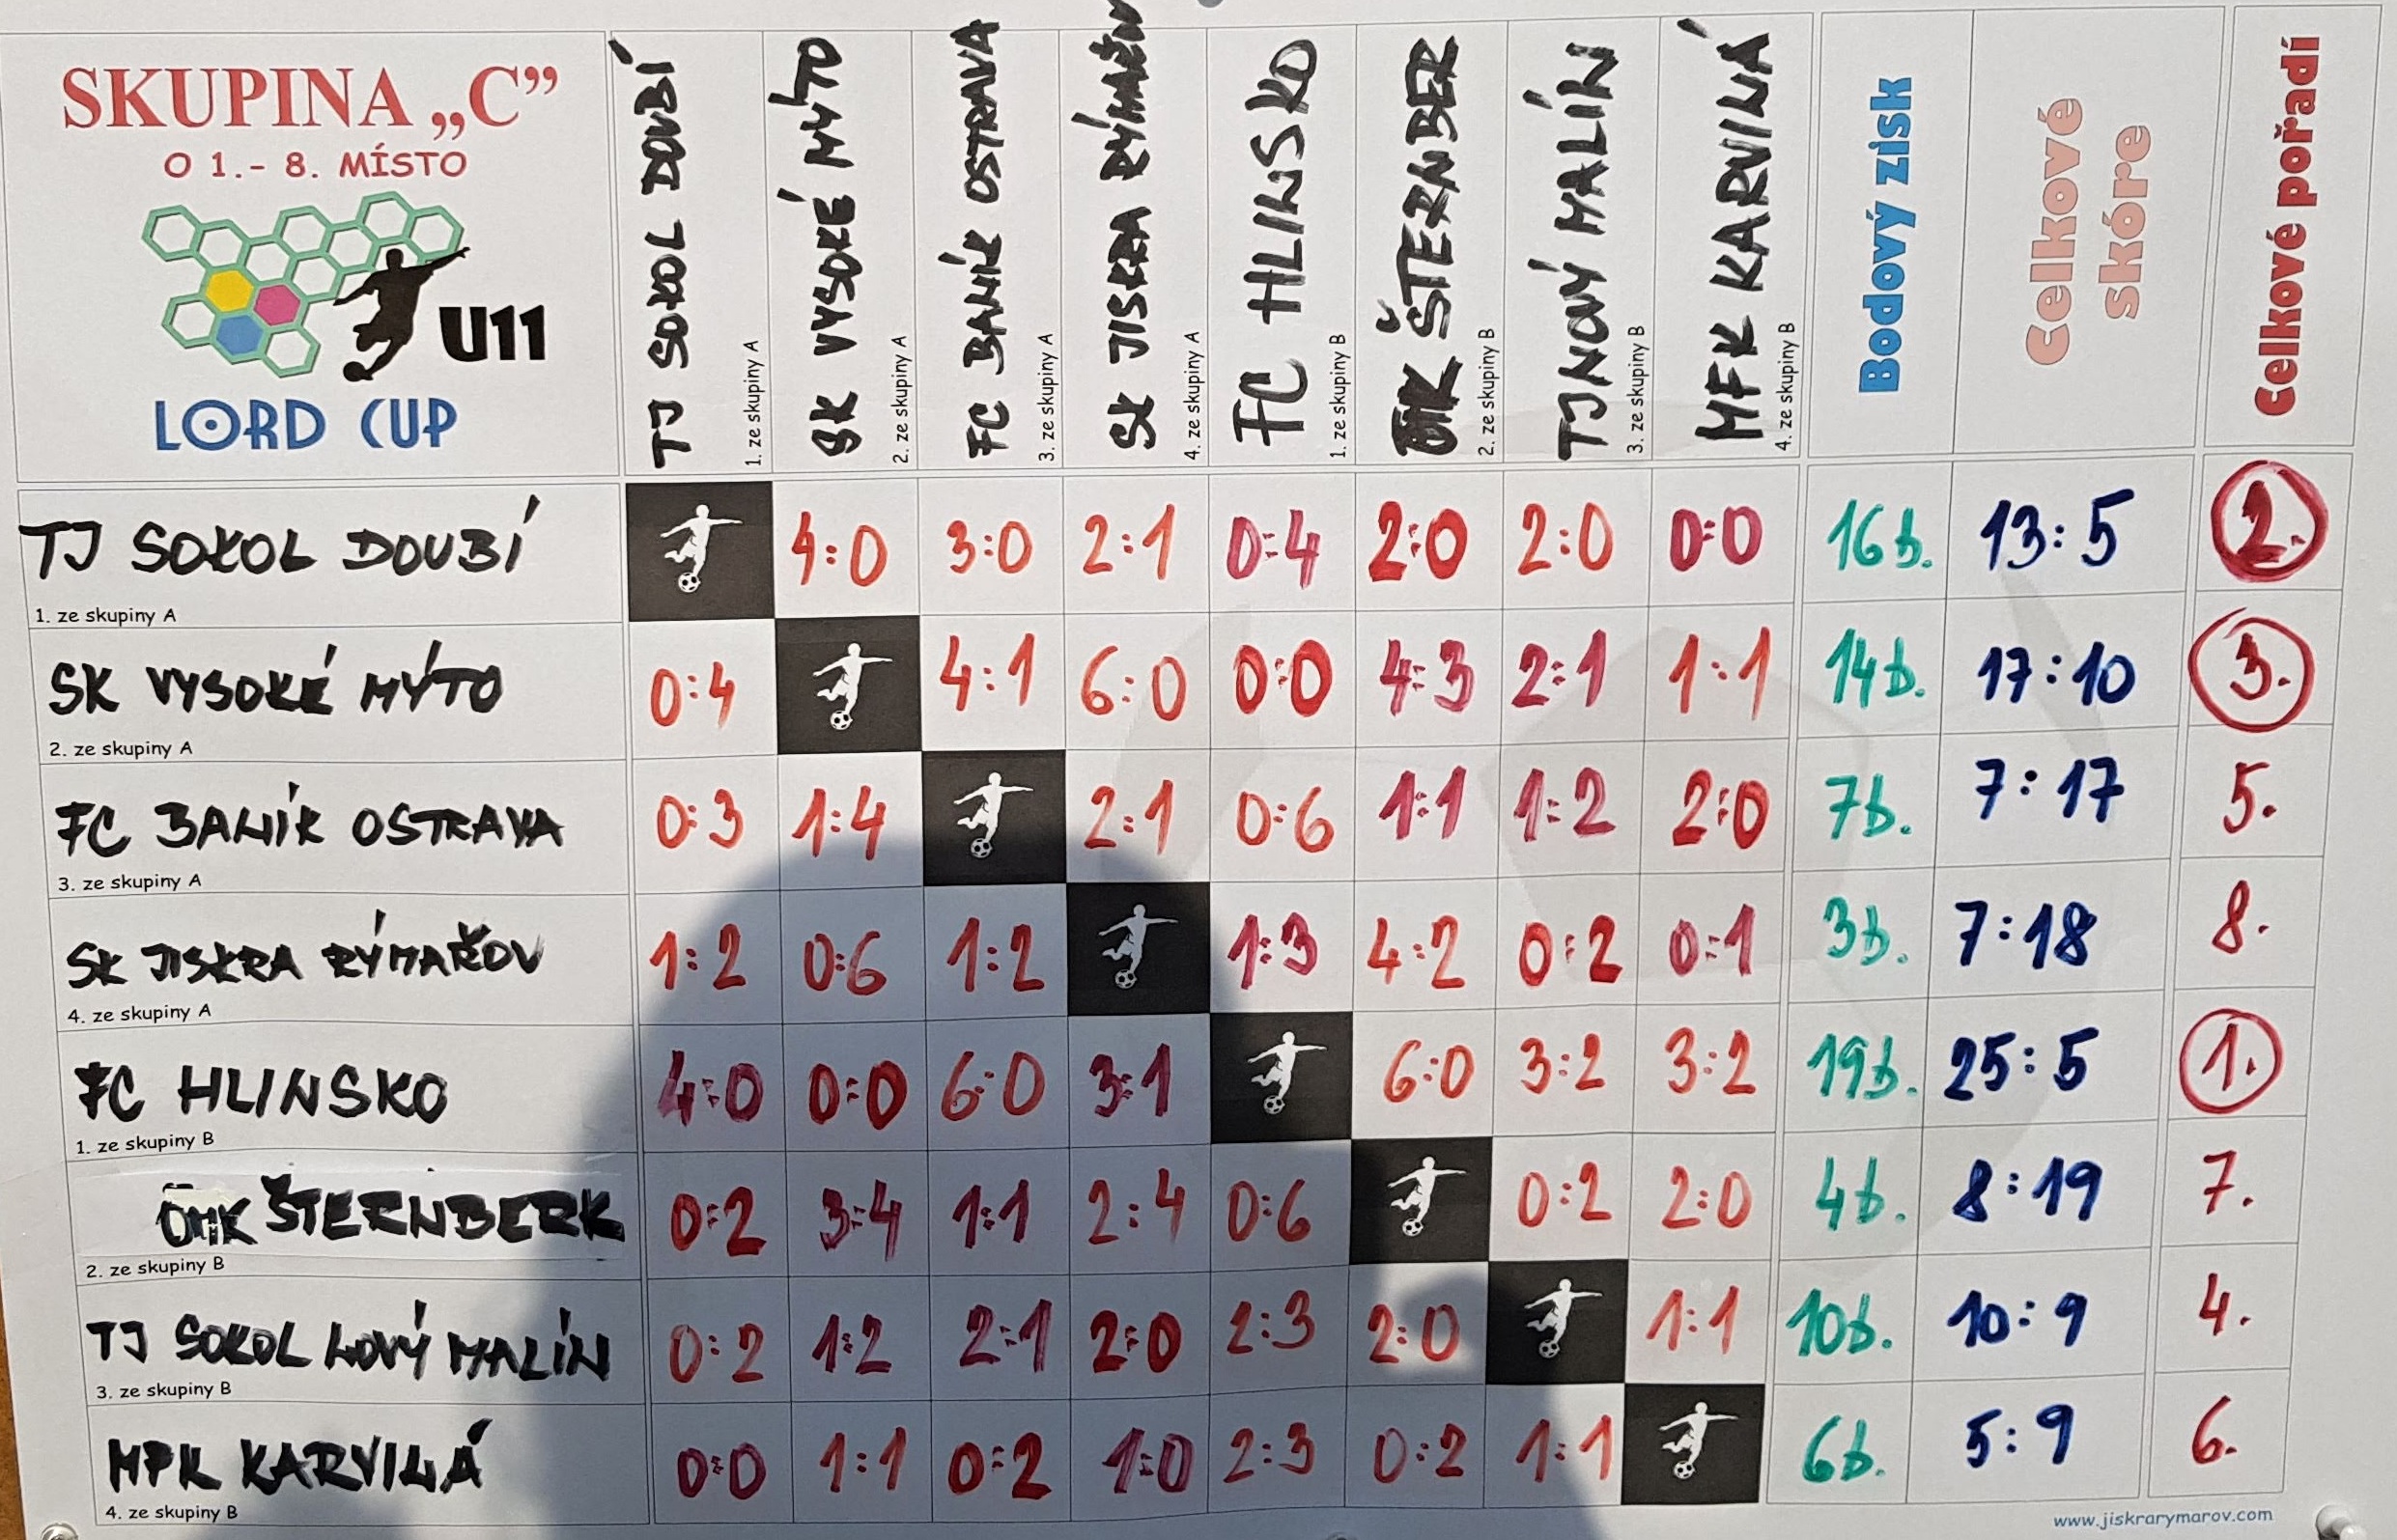 SKUPINA „C”
O 1.- 8. MÍSTO
U11
LORD CUP
TJ SOKOL DOUBÍ
1. ze skupiny A
SK VYSOKÉ MÝTO
2. ze skupiny A
FC BANÍK OSTRAVA
3. ze skupiny A
SK JISKRA RÝMAŘOV
4. ze skupiny A
FC HLINSKO
1. ze skupiny B
ŠTERNBER
2. ze skupiny B
TJ NOVÝ MALÍN
3. ze skupiny B
MFK KARVINÁ
4. ze skupiny B
Bodový zisk
Celkové skóre
Celkové pořadí
TJ SOKOL DOUBÍ 4:0 3:0 2:1 0:4 2:0 2:0 0:0 16b. 13:5 2.
1. ze skupiny A
SK VYSOKÉ MÝTO 0:4 4:1 6:0 0:0 4:3 2:1 1:1 14b. 17:10 3.
2. ze skupiny A
FC BANÍK OSTRAVA 0:3 1:4 2:1 0:6 1:1 1:2 2:0 7b. 7:17 5.
3. ze skupiny A
SK JISKRA RÝMAŘOV 1:2 0:6 1:2 1:3 4:2 0:2 0:1 3b. 7:18 8.
4. ze skupiny A
FC HLINSKO 4:0 0:0 6:0 3:1 6:0 3:2 3:2 19b. 25:5 1.
1. ze skupiny B
ŠTERNBERK 0:2 3:4 1:1 2:4 0:6 0:2 2:0 4b. 8:19 7.
2. ze skupiny B
TJ SOKOL NOVÝ MALÍN 0:2 1:2 2:1 2:0 2:3 2:0 1:1 10b. 10:9 4.
3. ze skupiny B
MFK KARVINÁ 0:0 1:1 0:2 1:0 2:3 0:2 1:1 6b. 5:9 6.
4. ze skupiny B
www.jiskrarymarov.com